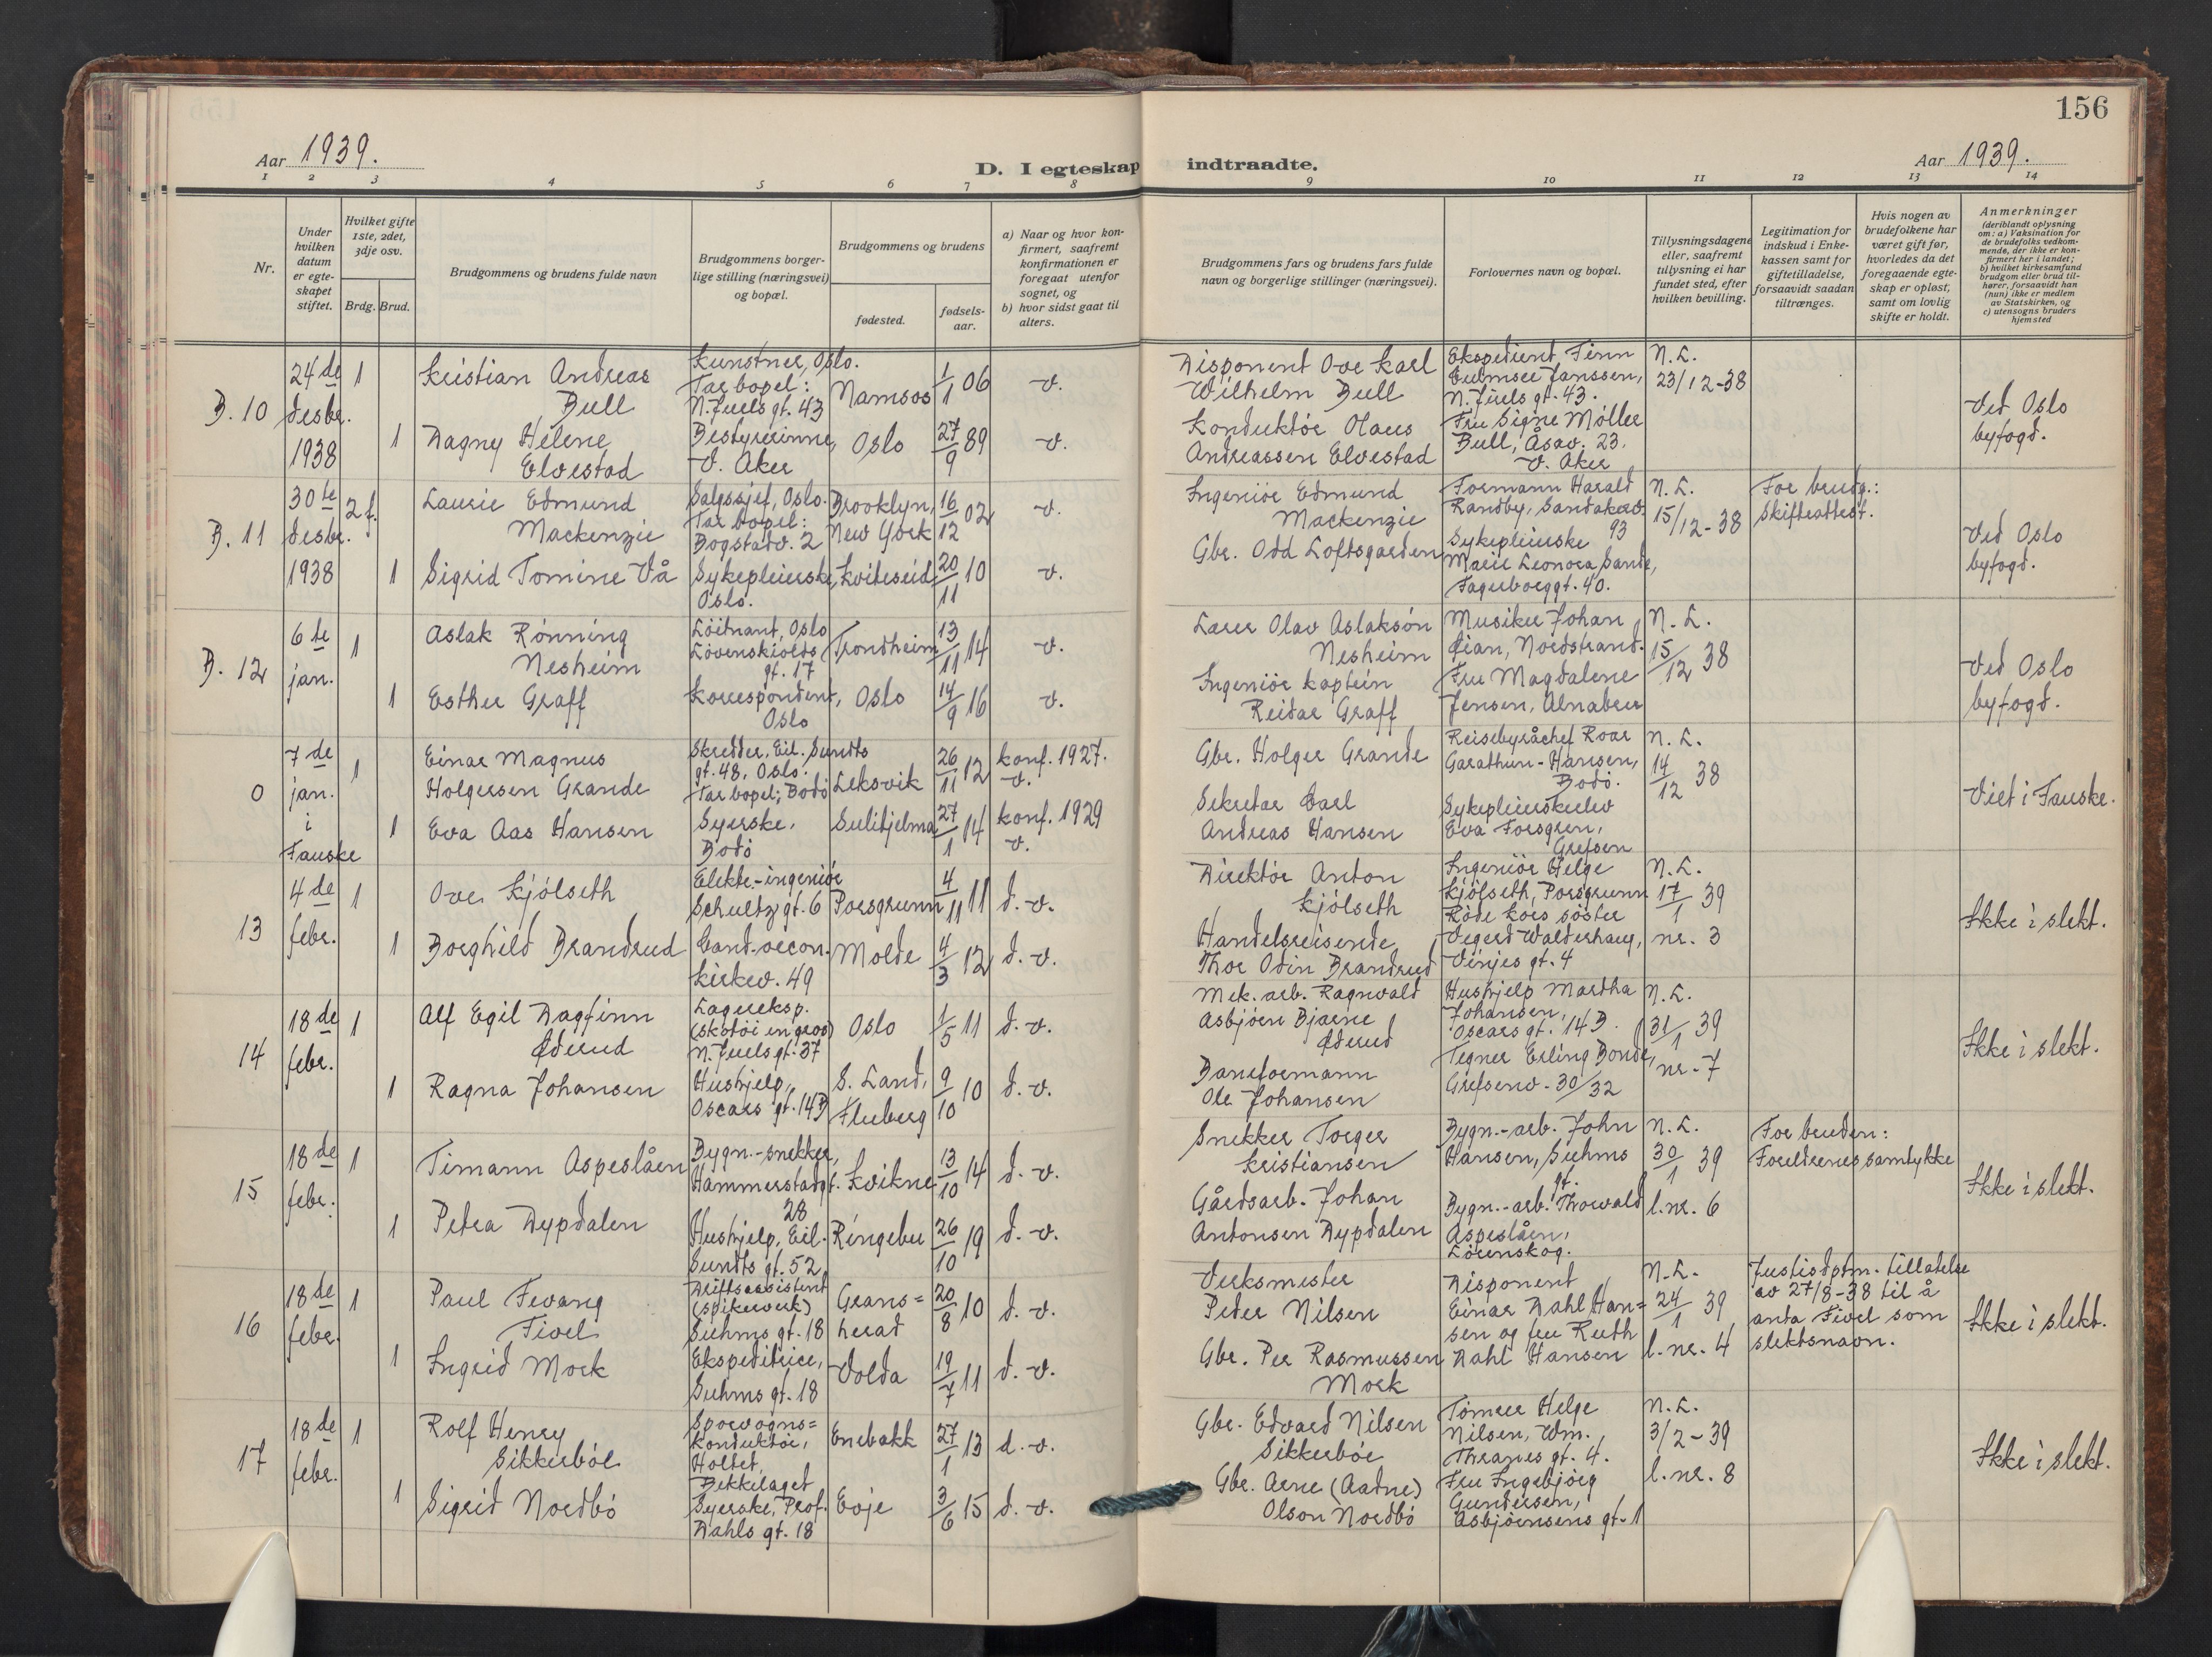 156
Aar 1939.
D. I egteskap indtraadte.
Aar 1939.
1 2 3 4 5 6 7 8 9 10 11 12 13 14
Nr.
Under
hvilken
datum
er egte-
skapet
stiftet.
Hvilket gifte
1ste, 2det,
3dje osv.
Brdg. Brud.
Brudgommens og brudens fulde navn
Brudgommens borger-
lige stilling (næringsvei)
og bopæl.
Brudgommens og brudens
fødested.
fødsels-
aar.
a) Naar og hvor kon-
firmert, saafremt
konfirmationen er
foregaat utenfor
sognet, og
b) hvor sidst gaat til
alters.
Brudgommens fars og brudens fars fulde
navn og borgerlige stillinger (næringsvei).
Forlovernes navn og bopæl.
Tillysningsdagene
eller, saafremt
tillysning ei har
fundet sted, efter
hvilken bevilling.
Legitimation for
indskud i Enke-
kassen samt for
giftetilladelse,
forsaavidt saadan
tiltrænges.
Hvis nogen av
brudefolkene har
været gift før,
hvorledes da det
foregaaende egte-
skap er opløst,
samt om lovlig
skifte er holdt.
Anmerkninger
(deriblandt oplysning
om: a) Vaksination for
de brudefolks vedkom-
mende, der ikke er kon-
firmert her i landet;
b) hvilket kirkesamfund
brudgom eller brud til-
hører, forsaavidt han
(hun) ikke er medlem
av Statskirken, og
c) utensogns bruders
hjemsted
B. 10
24de
desbr.
1938
1
Kristian Andreas
Bull
Kunstner, Oslo.
Tar bopel:
N. Juels gt. 43
Namsos
1/1 06
v.
1
Dagny Helene
Elvestad
Bestyrerinne,
V. Aker
Oslo
27/9 89
v.
Disponent Ove Karl
Wilhelm Bull
Konduktör Olaus
Andreassen Elvestad
Ekspedient Finn
Gulmsee Janssen,
N. Juels gt. 43.
Fru Signe Møller
Bull, Åsav. 23.
V. Aker
N. L.
23/12-38
Ved Oslo
byfogd.
B. 11
30te
desbr.
1938
2 f.
Laurie Edmund
Mackenzie
Salgssjef, Oslo.
Tar bopel:
Bogstadv. 2
Brooklyn,
New York
16/12 02
v.
1
Sigrid Tomine Vå
Sykepleierske,
Oslo.
Kviteseid
20/11 10
v.
Ingeniör Edmund
Mackenzie
Gbr. Odd Loftsgarden
Formann Harald
Randby, Sandakerv.
93
Sykepleierske
Marie Leonora Sande,
Fagerborggt. 40.
N. L.
15/12-38
For brudg.:
Skifteattest.
Ved Oslo
byfogd.
B. 12
6te
jan.
1
Aslak Rönning
Nesheim
Löitnant, Oslo
Lövenskiolds
gt. 17
Trondheim
13/11 14
v.
1
Esther Graff
Korrespondent,
Oslo
Oslo
14/9 16
v.
Lærer Olav Aslaksön
Nesheim
Ingeniör kaptein
Reidar Graff
Musiker Johan
Öian, Nordstrand.
Fru Magdalene
Jensen, Alnabru
N. L.
15/12 38
Ved Oslo
byfogd.
0
7de
jan.
i
Fauske
1
Einar Magnus
Holgersen Grande
Skredder, Eil. Sundts
gt. 48, Oslo.
Tar bopel; Bodö
Leksvik
26/11 12
konf. 1927.
v.
1
Eva Aas Hansen
Syerske,
Bodö
Sulitjelma
27/1 14
konf. 1929
v.
Gbr. Holger Grande
Sekretær Carl
Andreas Hansen
Reisebyråchef Roar
Garathun-Hansen,
Bodö.
Sykepleierskeelev
Eva Forsgren,
Grefsen
N. L.
14/12 38
Viet i Fauske.
13
4de
febr.
1
Ove Kjölseth
Elektr.-ingeniör
Schultz gt. 6
Porsgrunn
4/11 11
d. v.
1
Borghild Brandrud
Cand. oecon.
Kirkev. 49
Molde
4/3 12
d. v.
Direktör Anton
Kjölseth
Handelsreisende
Thor Odin Brandrud
Ingeniör Helge
Kjölseth, Porsgrunn
Röde kors söster
Vegerd Walderhaug,
Vinjes gt. 4
N. L.
17/1 39
nr. 3
Ikke i slekt.
14
18de
febr.
1
Alf Egil Dagfinn
Öderud
Lagereksp.
(skotöi engros)
N. Juels gt. 37
Oslo
1/5 11
d. v.
1
Ragna Johansen
Hushjelp,
Oscars gt. 14B
S. Land,
Fluberg
9/10 10
d. v.
Mek. arb. Ragnvald
Asbjörn Bjarne
Öderud
Baneformann
Ole Johansen
Hushjelp Martha
Johansen,
Oscars gt. 14B.
Tegner Erling Bonde,
Grefsenv. 30/32
N. L.
31/1 39
nr. 7
Ikke i slekt.
15
18de
febr.
1
Timann Aspeslåen
Bygn.-snekker,
Hammerstadgt.
28
Kvikne
13/10 14
d. v.
1
Petra Dypdalen
Hushjelp, Eil.
Sundts gt. 52
Ringebu
26/10 19
d. v.
Snekker Torger
Kristiansen
Gårdsarb. Johan
Antonsen Dypdalen
Bygn.-arb. John
Hansen, Suhms
gt.
Bygn.-arb. Thorvald
Aspeslåen,
Lörenskog.
N. L.
30/1 39
l. nr. 6
For bruden:
Foreldrenes samtykke
Ikke i slekt.
16
18de
febr.
1
Paul Fevang
Fivel
Driftsassistent
(spikerverk)
Suhms gt. 18
Grans=
herad
20/8 10
d. v.
1
Ingrid Mork
Ekspeditrice,
Suhms gt. 18
Volda
19/7 11
d. v.
Verksmester
Peder Nilsen
Gbr. Per Rasmussen
Mork
Disponent
Einar Dahl Han=
sen og fru Ruth
Dahl Hansen
N. L.
24/1 39
l. nr. 4
Justisdptm. tillatelse
av 27/8-38 til å
anta Fivel som
slektsnavn.
Ikke i slekt.
17
18de
febr.
1
Rolf Henry
Sikkerböl
Sporvogns=
konduktör,
Holtet,
Bekkelaget
Enebakk
27/1 13
d. v.
1
Sigrid Nordbö
Syerske, Prof.
Dahls gt. 18
Evje
3/6 15
d. v.
Gbr. Edvard Nilsen
Sikkerböl
Gbr. Arne (Aadne)
Olson Nordbö
Tömrer Helge
Nilsen, Wm.
Thranes gt. 4.
Fru Ingebjörg
Gundersen,
Asbjörnsens gt. 1
N. L.
3/2-39
l. nr. 8
Ikke i slekt.